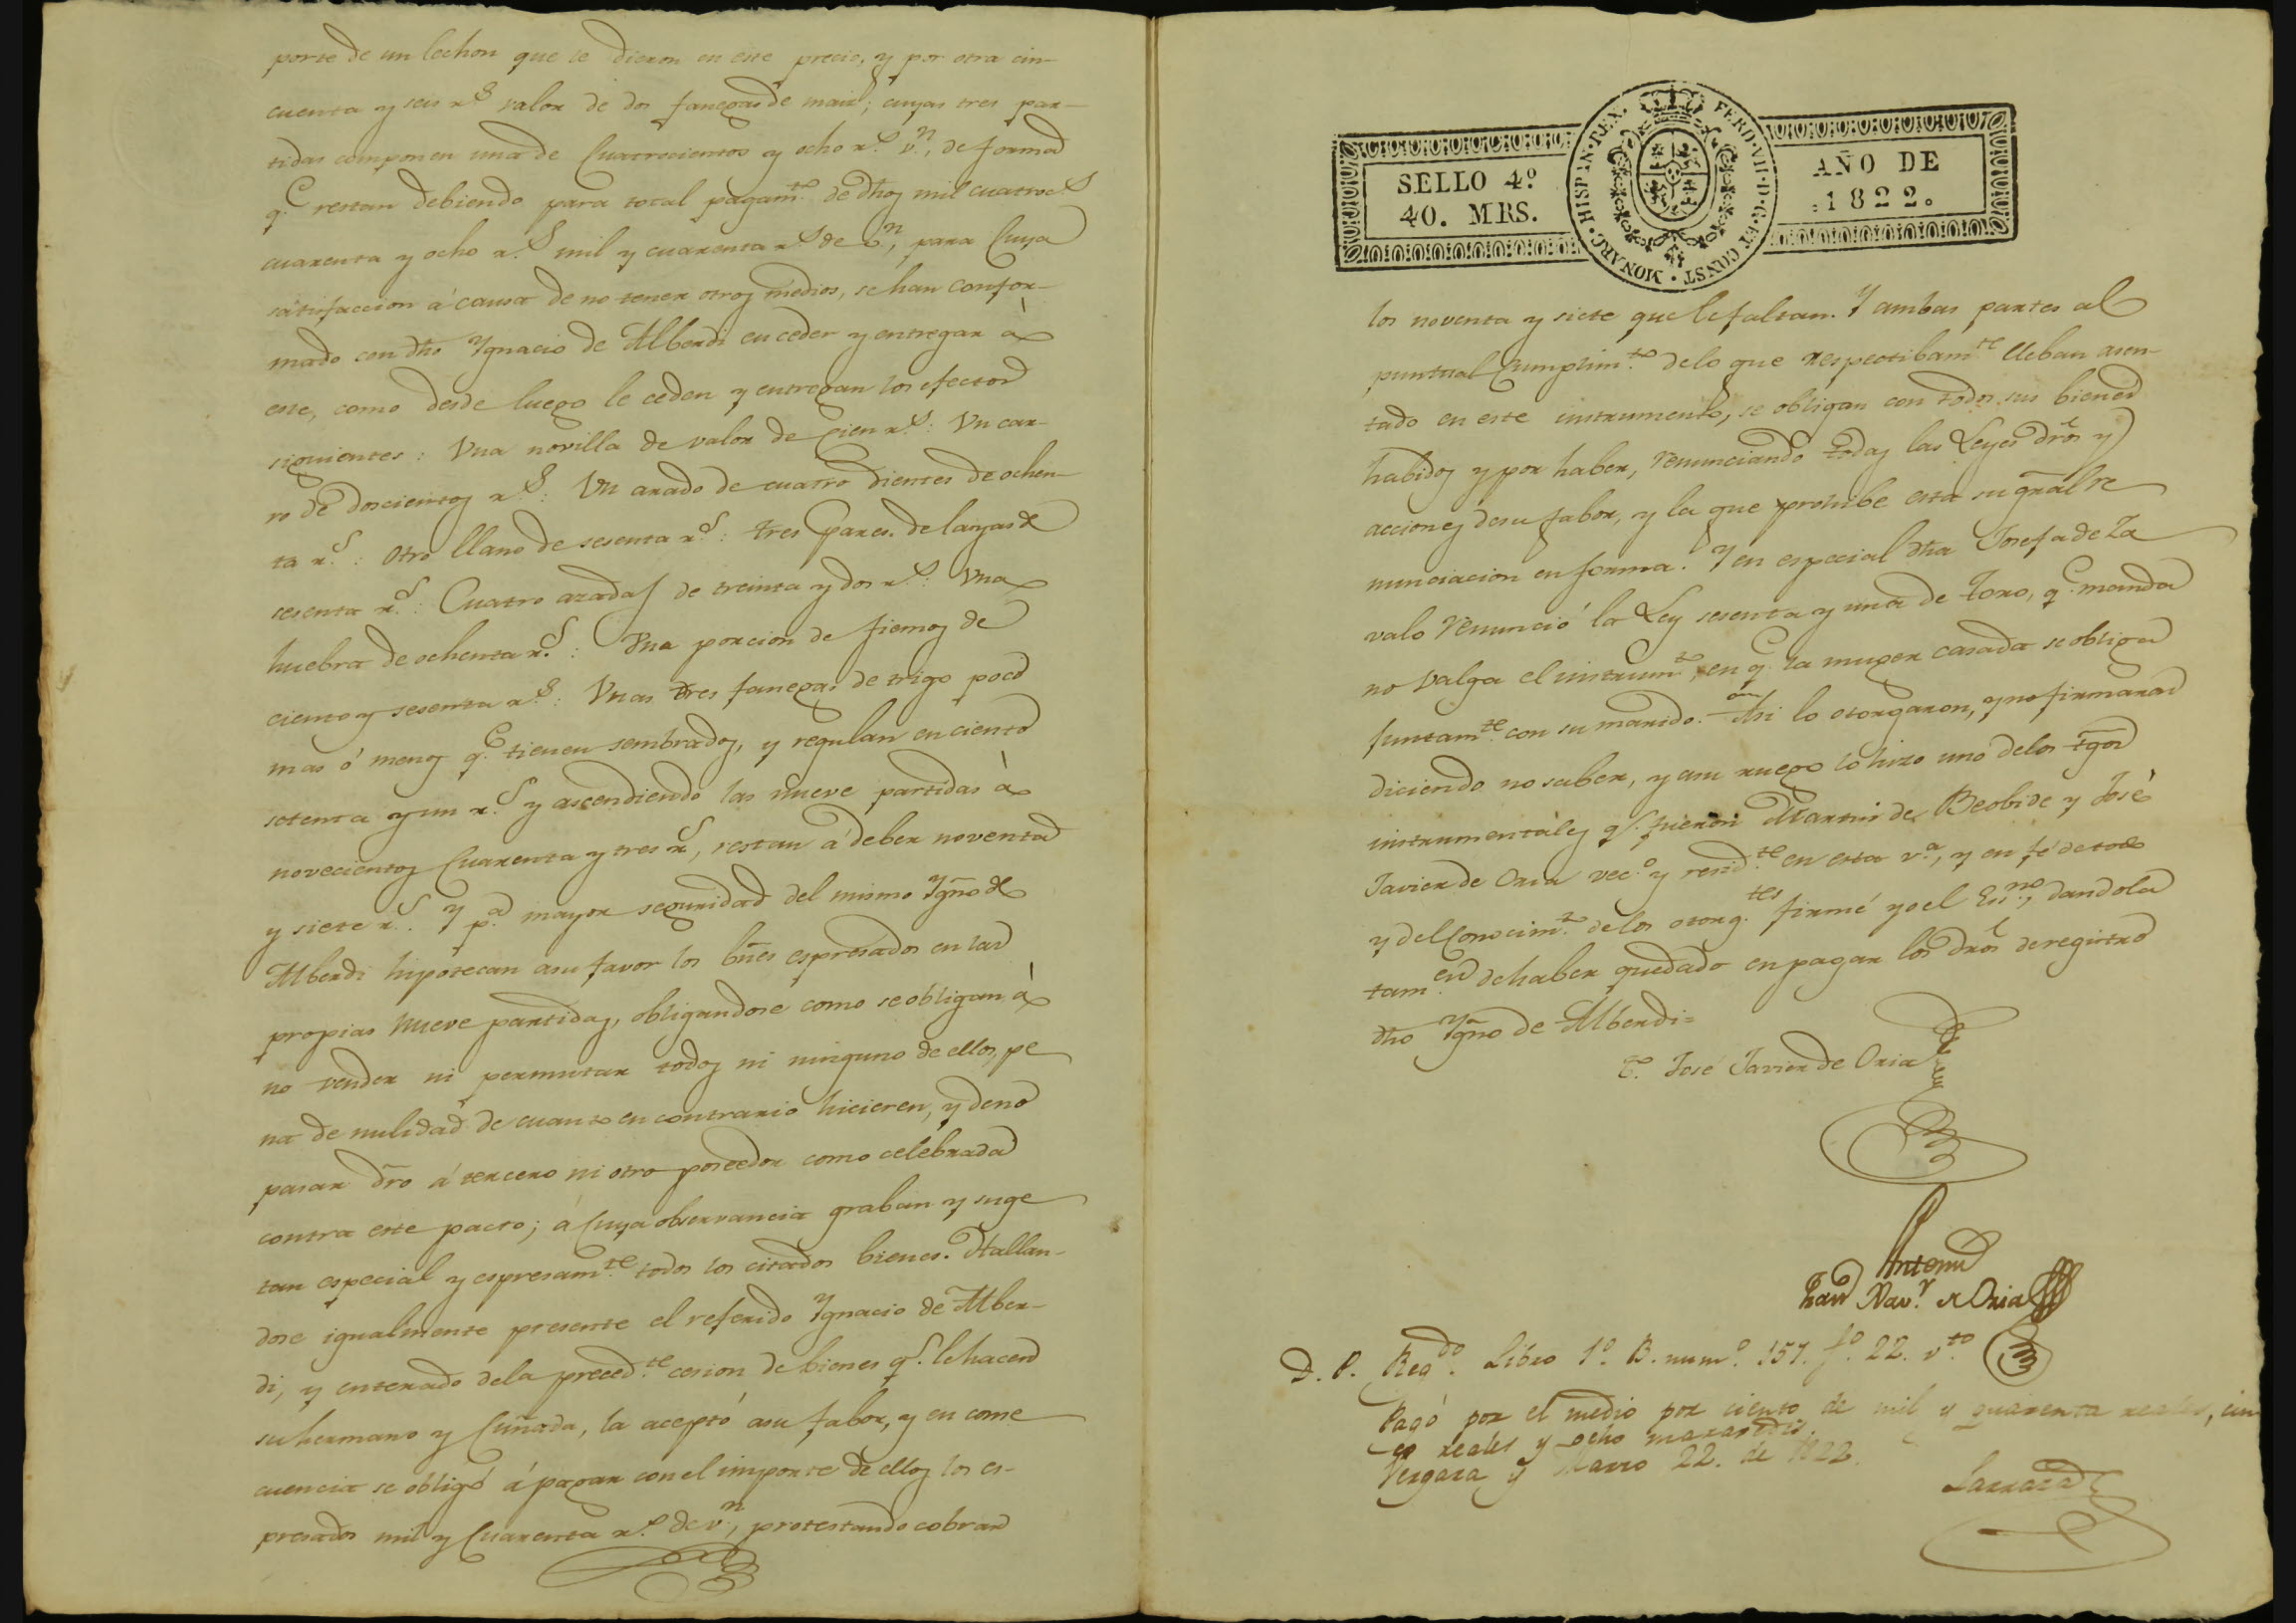 porte de un lechon que le dieron en este precio, y por otra cin-
cuenta y seis r.s valor de dos fanegas de maiz; cuyas tres par-
tidas componen una de Cuatrocientos y ocho r.s v.n, de forma
q.e restan debiendo para total pagam.to de dhos mil cuatroc.s
cuarenta y ocho r.s mil y cuarenta r.s de v.n, para Cuya
satisfaccion á causa de no tener otros medios, se han confor-
mado con dho Ygnacio de Alberdi en ceder y entregar à
este, como desde luego le ceden y entregan los efectos
siguientes: Una novilla de valor de Cien r.s: Un car-
ro de doscientos r.s: Un arado de cuatro dientes de ochen-
ta r.s: Otro llano de sesenta r.s: tres Pares de layas de
sesenta r.s: Cuatro azadas de treinta y dos r.s: Una
huebra de ochenta r.s: Una porcion de fiemos de
ciento y sesenta r.s: Unas tres fanegas de trigo poco
mas ó menos q.e tienen sembrados, y regulan en ciento
setenta y un r.s y ascendiendo las nueve partidas à
novecientos Cuarenta y tres r.s, restan á deber noventa
y siete r.s. Y p.a mayor seguridad del mismo Ygno de
Alberdi hipotecan a su favor los bnes espresados en las
propias nueve partidas, obligandose como se obligan à
no vender ni permutar todos ni ninguno de ellos, pe
na de nulidad de cuanto en contrario hicieren, y de no
pasar dro á tercero ni otro poseedor como celebrada
contra este pacto; á Cuya observancia graban y suge
tan especial y espresam.te todos los citados bienes. Hallan-
dose igualmente presente el referido Ygnacio de Alber-
di, y enterado de la preced.te cesion de bienes q.e le hacen
su hermano y Cuñada, la aceptó a su fabor, y en conse
cuencia se obligó á pagar con el importe de ellos los es-
presados mil y Cuarenta r.s de v.n, protestando cobrar
SELLO 4º
40. MRS.
HISPAN·REX· FERD·VII·D·G·ET CONST·MONARC·
AÑO DE
1822.
los noventa y siete que le faltan. Y ambas partes al
puntual Cumplim.to de lo que respectibam.te lleban asen-
tado en este instrumento, se obligan con todos sus bienes
habidos y por haber, renunciando todas las Leyes dros y
acciones de su fabor, y la que prohibe esta su gral re
nunciacion en forma. Y en especial dha Josefa de Za
valo renunció la Ley sesenta y una de Toro, q.e manda
no valga el instrum.to, en q.e la muger casada se obliga
juntam.te con su marido. Asi lo otorgaron, y no firmaron
diciendo no saber, y a su ruego lo hizo uno de los tgos
instrumentales q.e fueron Martin de Beobide y José
Javier de Oria vec.o y resid.te en esta v.a, y en fé de todo
y del Conocim.to de los otorg.tes firmé yo el Es.no, dandola
tam.en de haber quedado en pagar los dros de registro
dho Ygno de Alberdi=
T.o José Javier de Oria
Antemi
Nav.r de Oria
D. P. Reg.do Libro 1º B. num.º 157. fº. 22. v.to
Pagó por el medio por ciento de mil y quarenta reales, cin
co reales y ocho maravedis.
Vergara y Marzo 22. de 1822.